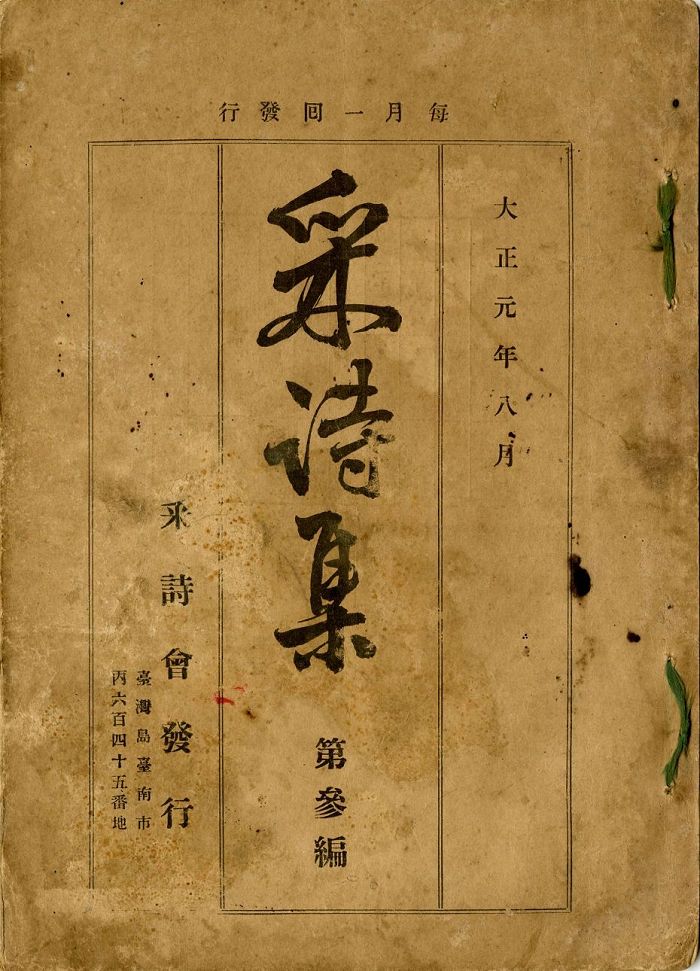 每月一囘發行
大正元年八月
采詩集
第參編
采詩會發行
臺灣島臺南市
丙六百四十五番地